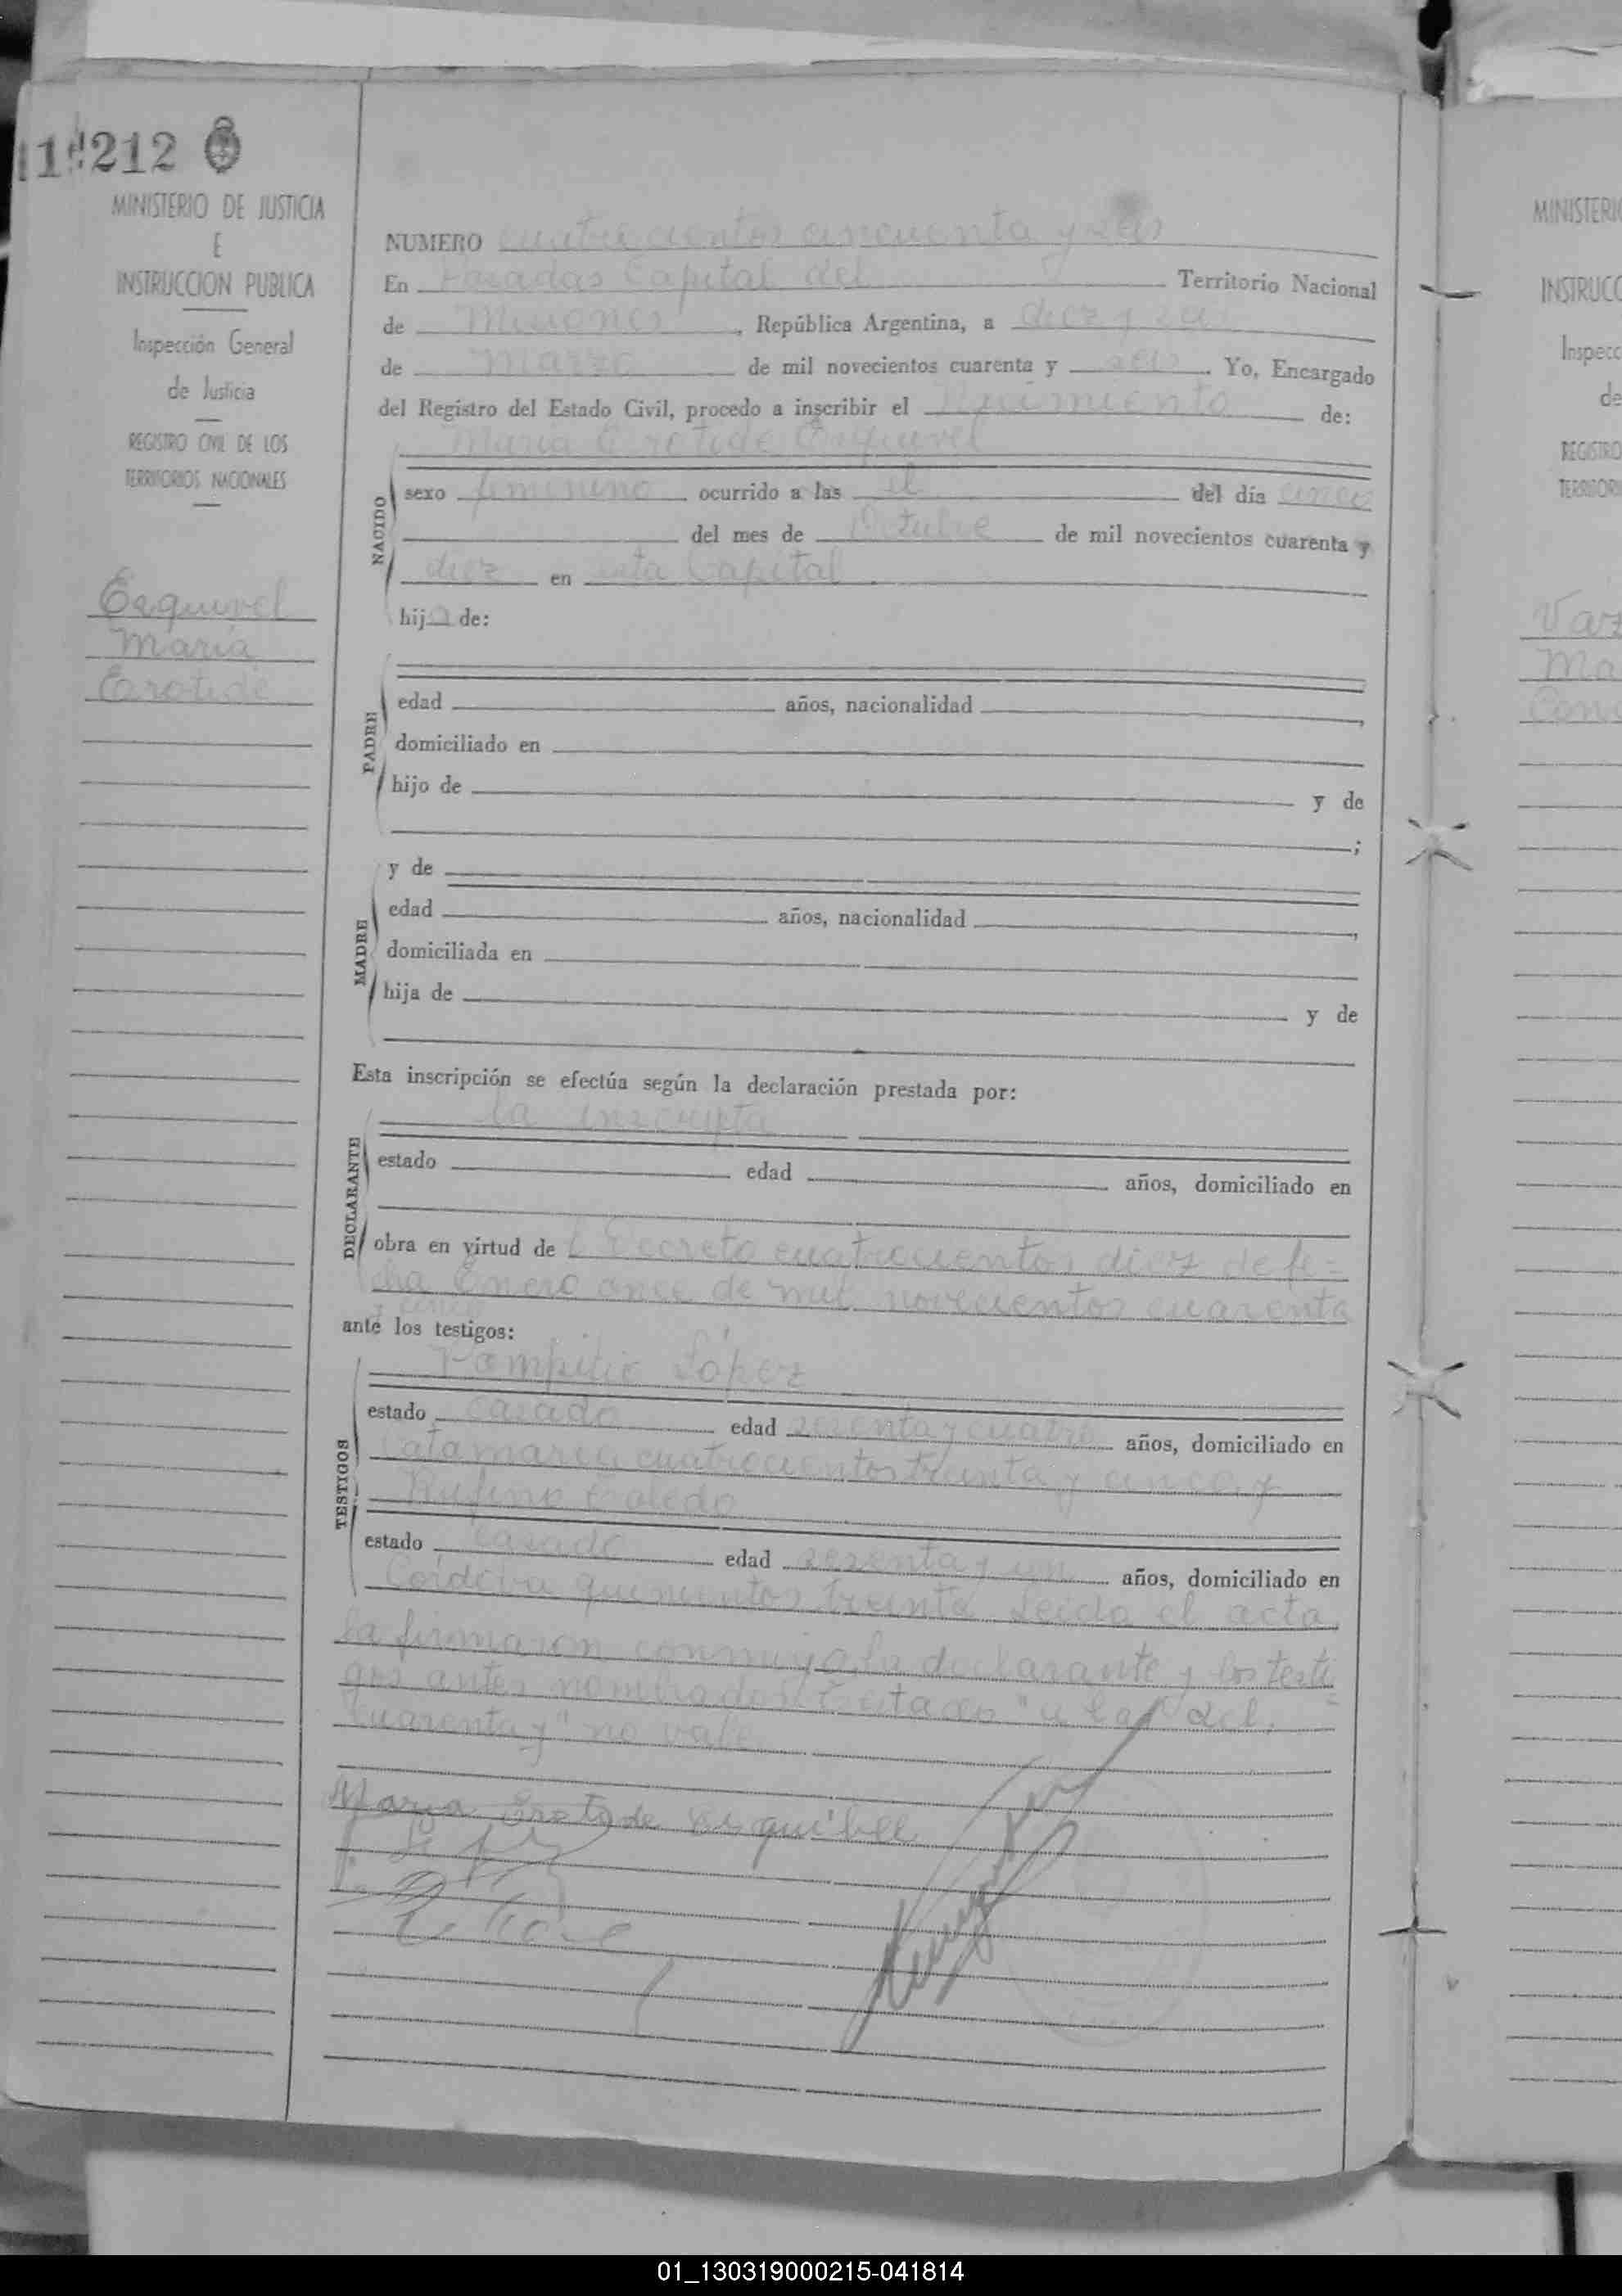 212
MINISTERIO DE JUSTICIA
E
INSTRUCCION PUBLICA
Inspección General
de Justicia
REGISTRO CIVIL DE LOS
TERRITORIOS NACIONALES
Esquivel
María
Erotide
NUMERO cuatrocientos cincuenta y seis
En Posadas Capital del Territorio Nacional
de Misiones, República Argentina, a diez y seis
de Marzo de mil novecientos cuarenta y seis. Yo, Encargado
del Registro del Estado Civil, procedo a inscribir el Nacimiento de:
María Erotide Esquivel
NACIDO
sexo femenino ocurrido a las el del día cinco
del mes de Octubre de mil novecientos cuarenta y
diez en esta Capital
hija de:
PADRE
edad años, nacionalidad ,
domiciliado en
hijo de y de
;
MADRE
y de
edad años, nacionalidad ,
domiciliada en
hija de y de
Esta inscripción se efectúa según la declaración prestada por:
DECLARANTE
la inscripta
estado edad años, domiciliado en
obra en virtud del Decreto cuatrocientos diez de fe=
cha Enero once de mil novecientos cuarenta
y cinco
ante los testigos:
TESTIGOS
Pompilio López
estado casado edad sesenta y cuatro años, domiciliado en
Catamarca cuatrocientos treinta y cinco y
Rufino Toledo
estado casado edad sesenta y un años, domiciliado en
Córdova quinientos treinta. Leída el acta
la firmaron conmigo la declarante y los testi
gos antes nombrados. Testado "a las" del.
cuarenta y" no vale
Maria Erotide Esquibel
MINISTERI
INSTRUCC
Inspecc
de
REGISTRO
TERRITORI
Ma
01_130319000215-041814